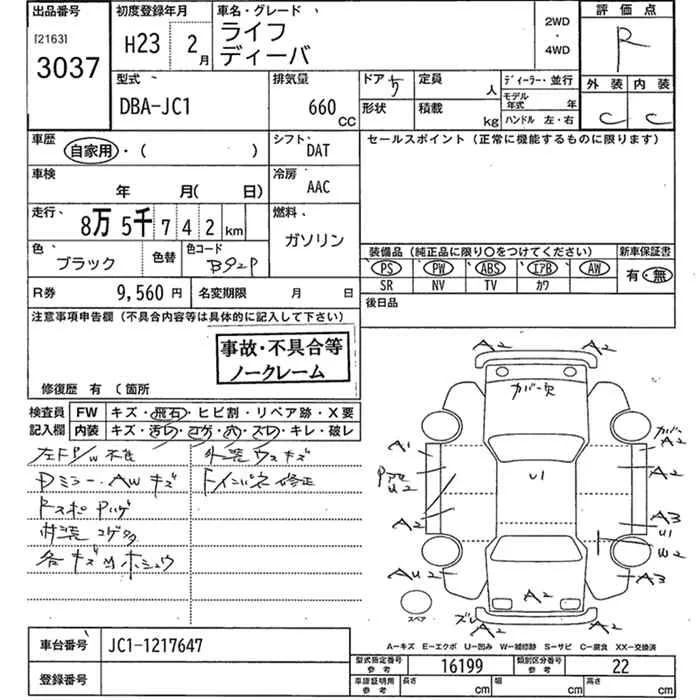 出品番号 初度登録年月 車名・グレード 評価点
[2163] H23 2月 ライフ 2WD R
3037 ディーバ ・ 4WD
型式 排気量 ドア 5 定員 人 ディーラー・並行 外装 内装
DBA-JC1 660 CC 形状 積載 kg モデル年式 年 C C
ハンドル 左・右
車歴 自家用・( ) シフト DAT セールスポイント(正常に機能するものに限ります)
車検 年 月( 日) 冷房 AAC
走行 8万5千742km 燃料 ガソリン
色 ブラック 色替 色コード B92P
装備品(純正品に限り○をつけてください) 新車保証書
PS PW ABS エアB AW 有・無
SR NV TV カワ
R券 9,560円 名変期限 月 日 後日品
注意事項申告欄(不具合内容等は具体的に記入して下さい)
事故・不具合等
ノークレーム
修復歴 有 ( 箇所
検査員 FW キズ・飛石・ヒビ割・リペア跡・X要
記入欄 内装 キズ・汚レ・コゲ・穴・スレ・キレ・破レ
左FP/W不良 外装ウスキズ
Dミラー・AWキズ
内装コゲ
A2 A2
カバー欠
A1 カバー A2
U2 U1 A2
A2 A3
U1
W2
AU2 A2 A3
スペア ズレ A2 A2
A－キズ E－エクボ U－凹み W－補修跡 S－サビ C－腐食 XX－交換済
車台番号 JC1-1217647
登録番号
型式指定番号 参考 16199 類別区分番号 参考 22
車庫証明用 参考 長さ cm 幅 cm 高さ cm